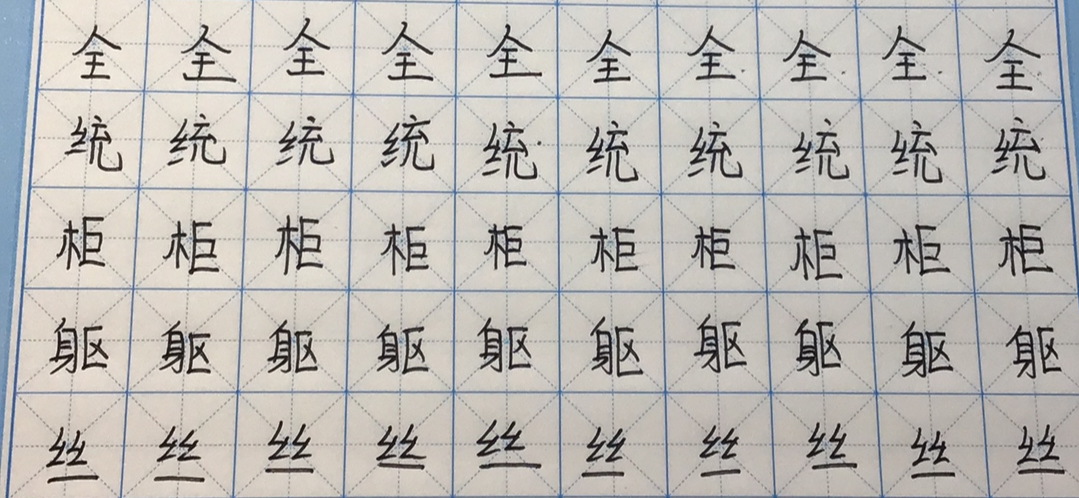 全全全全全全全全全全
统统统统统统统统统统
柜柜柜柜柜柜柜柜柜柜
躯躯躯躯躯躯躯躯躯躯
丝丝丝丝丝丝丝丝丝丝